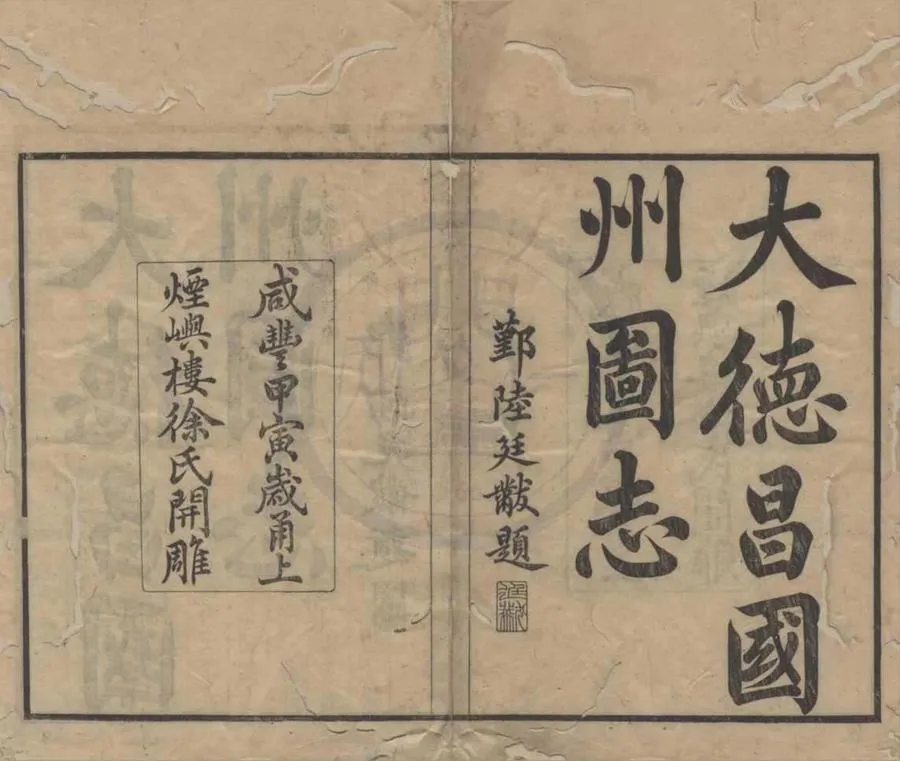 大德昌國
州圖志
鄞陸廷黻題
咸豐甲寅歲甬上
煙嶼樓徐氏開雕